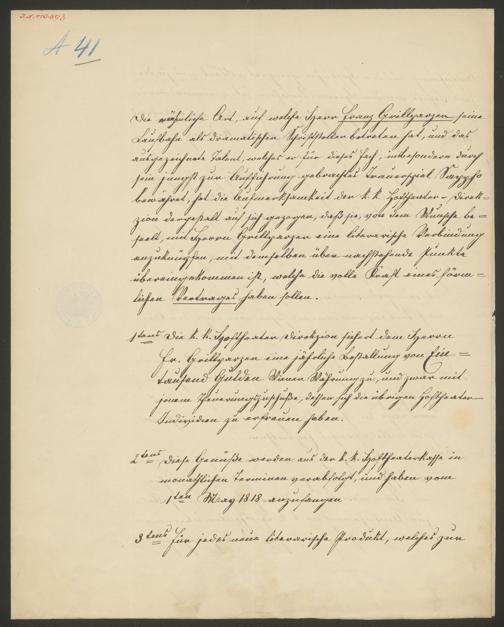 A 41
Die rühmliche Art, auf welche Herr Franz Grillparzer seine
Laufbahn als dramatischer Schriftsteller betreten hat, und das
ausgezeichnete Talent, welches er für dieses Fach, insbesondere durch
sein jüngst zur Aufführung gebrachtes Trauerspiel Sappho
bewährt, hat die Aufmerksamkeit der k. k. Hoftheater-Direk=
zion dergestalt auf sich gezogen, daß sie, von dem Wunsche be=
seelt, mit Herrn Grillparzer eine literarische Verbindung
anzuknüpfen, mit demselben über nachstehende Punkte
übereingekommen ist, welche die volle Kraft eines förm=
lichen Vertrages haben sollen.
1tens Die k. k. Hoftheater Direkzion sichert dem Herrn
Fr. Grillparzer eine jährliche Bestallung von Ein=
tausend Gulden Wiener Währung zu, und zwar mit
jenem Theuerungszuschuße, dessen sich die übrigen Hoftheater
Individuen zu erfreuen haben.
2tens Diese Genüße werden aus der k. k. Hoftheaterkasse in
monathlichen Terminen verabfolgt, und haben vom
1ten May 1818 anzufangen.
3tens Für jedes neue literarische Produkt, welches zur